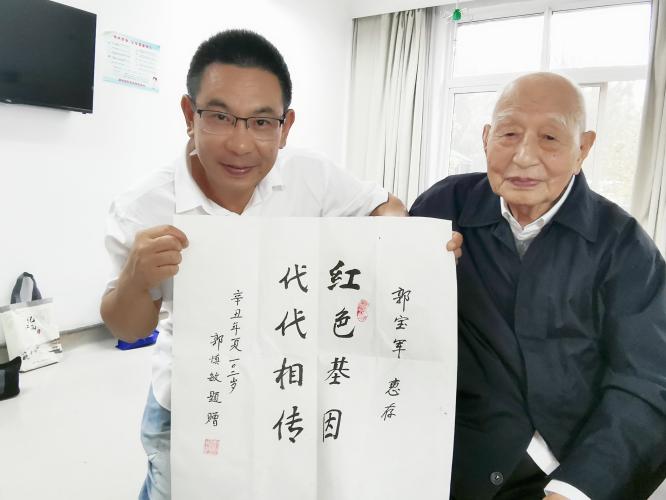 郭宝军 惠存
红色基因
代代相传
辛丑年夏 一〇二岁
郭慎敏题赠